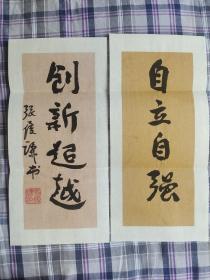 自立自强
创新超越
张, 书